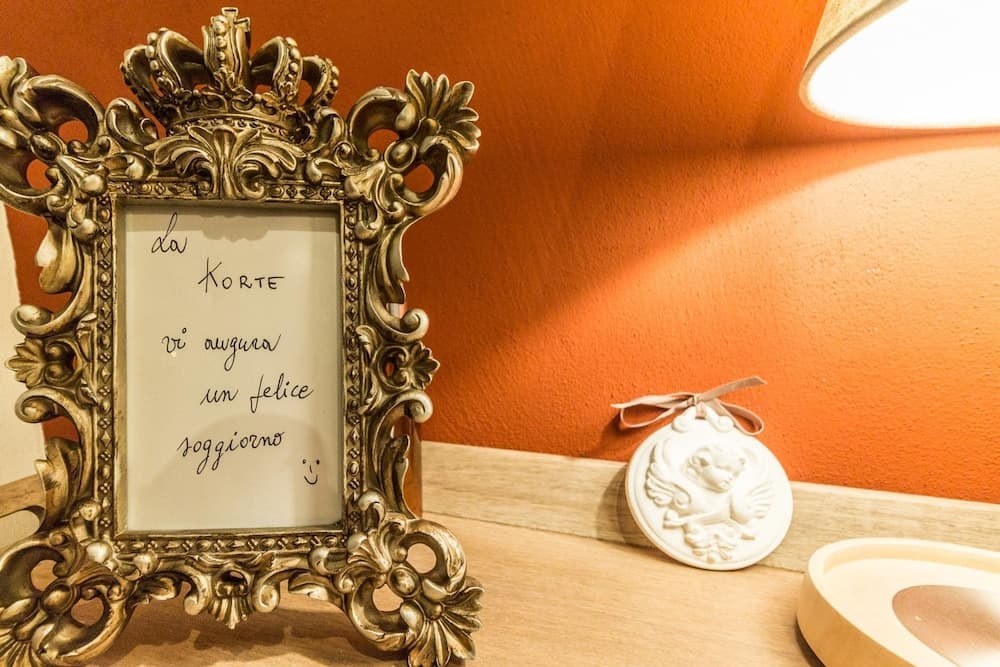 La
KORTE
vi augura
un felice
soggiorno
:)